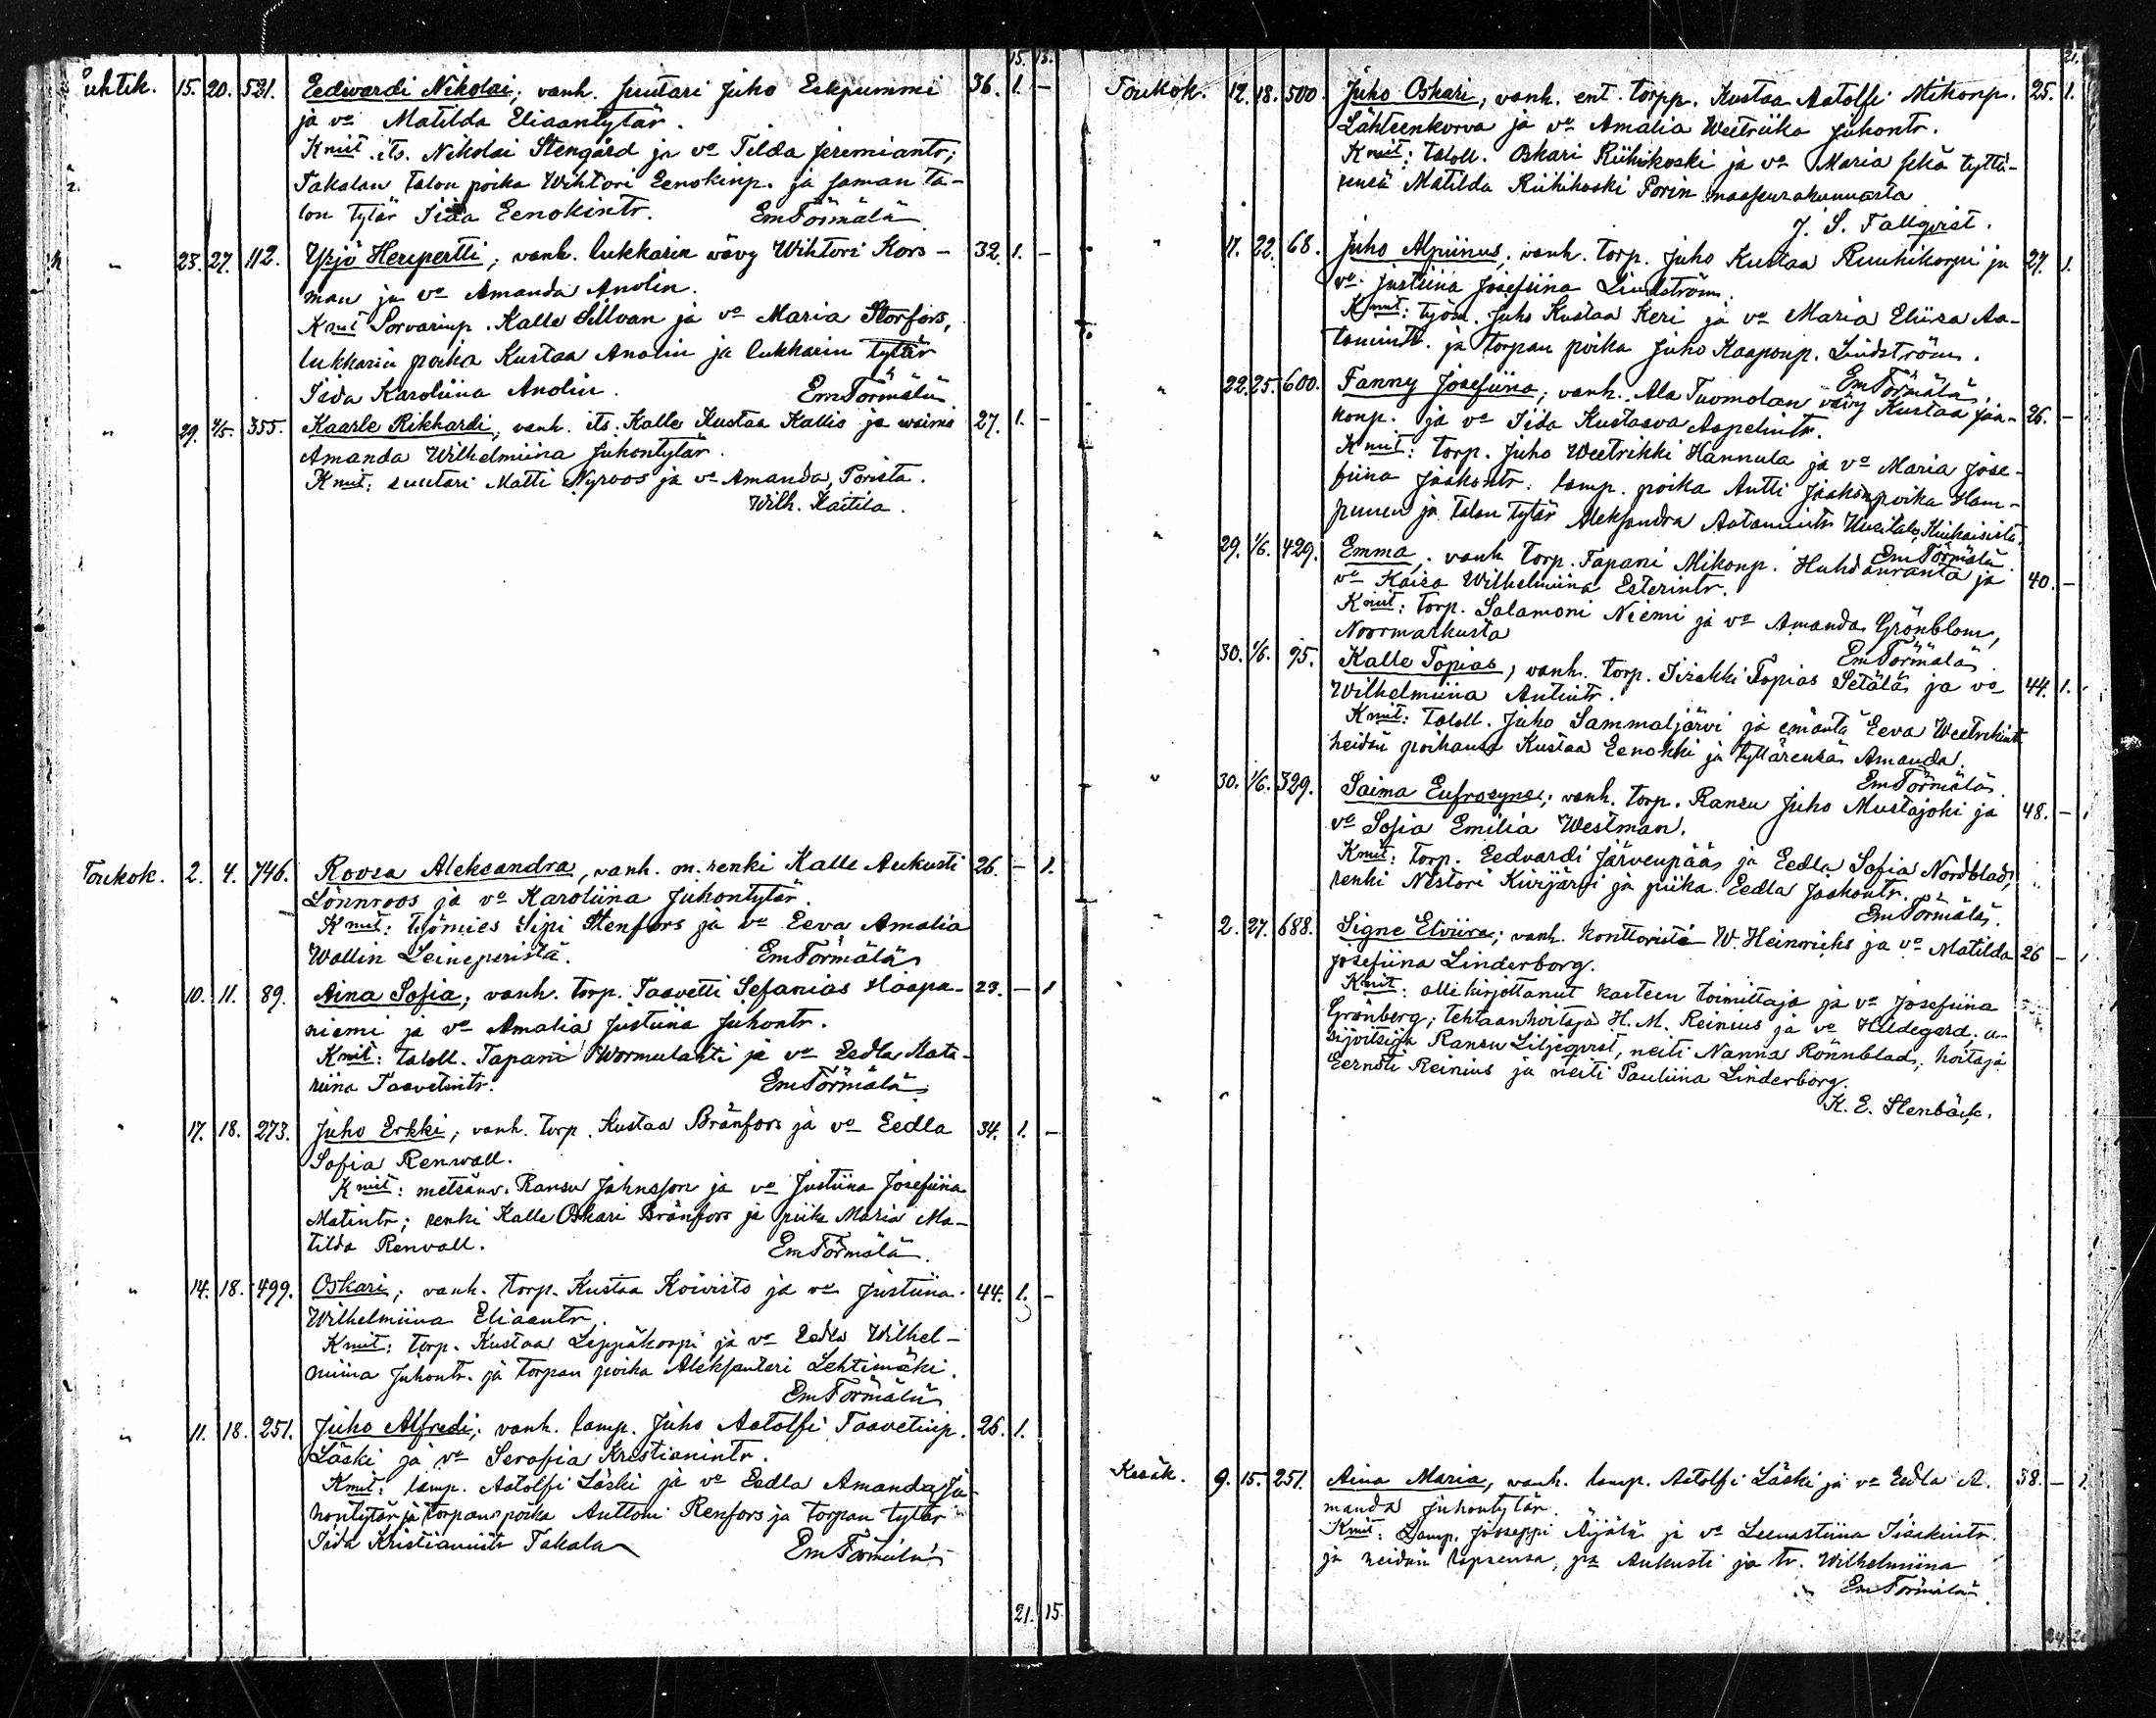 15. 15.
uhtik. 15. 20. 531. Eedwardi Nikolai; vanh. suutari Juho Eskpummi 36. 1. –
ja vo Matilda Eliaantytär.
Kmit. its. Nikolai Stengård ja vo Tilda Jeremiantr;
Takalan talon poika Wihtori Eenokinp. ja saman ta-
lon tytär Iida Eenokintr. Em Törmälä
" 23. 27. 112. Yrjö Herpertti; vanh. lukkarin vävy Wihtori Kors- 32. 1. –
man ja vo Amanda Anolin.
Kmit Sorvarinp. Kalle Sillvan ja vo Maria Storfors,
lukkarin poika Kustaa Anolin ja lukkarin tytär
Iida Karoliina Anolin. Em Törmälä
" 29. 4/5. 355. Kaarle Rikhardi; vanh. its. Kalle Kustaa Kallio ja waimo 27. 1. –
Amanda Wilhelmiina Juhontytär.
Kmit: suutari Matti Nyroos ja vo Amanda, Porista.
Wilh. Kaitila.
Toukok. 2. 4. 746. Roosa Aleksandra, vanh. m. renki Kalle Aukusti 26. – 1.
Lönnroos ja vo Karoliina Juhontytär.
Kmit: työmies Sipi Stenfors ja vo Eeva Amalia
Wallin Leineperistä. Em Törmälä
" 10. 11. 89. Aina Sofia; vanh. torp. Taavetti Sefanias Haapa- 23. – 1
niemi ja vo Amalia Justiina Juhontr.
Kmit: taloll. Tapani Wormulahti ja vo Eedla Kata-
riina Taavetintr. Em Törmälä
" 17. 18. 273. Juho Erkki; vanh. torp. Kustaa Bränfors ja vo Eedla 34. 1. –
Sofia Renwall.
Kmit: metsänv. Ransu Johnsson ja vo Justiina Josefiina
Matintr; renki Kalle Oskari Bränfors ja piika Maria Ma-
tilda Renvall. Em Törmälä.
" 14. 18. 499. Oskari; vanh. torp. Kustaa Koivisto ja vo Justiina 44. 1. –
Wilhelmiina Eliaantr.
Kmit: torp. Kustaa Leppäkorpi ja vo Eedla Wilhel-
miina Juhontr. ja torpan poika Aleksanteri Lehtimäki.
Em Törmälä
" 11. 18. 251. Juho Alfredi; vanh. lamp. Juho Aatolfi Taavetinp. 26. 1.
Läski ja vo Serafia Kristianintr.
Kmit: lamp. Aatolfi Läski ja vo Eedla Amanda Ju-
hontytär ja torpan poika Anttoni Renfors ja torpan tytär
Iida Kristianintr Takala Em Törmälä
21. 15.
21.
Toukok. 12. 18. 500. Juho Oskari, vanh. ent. torpp. Kustaa Aatolfi Mikonp. 25. 1.
Lähteenkorva ja vo Amalia Weetriika Juhontr.
Kmit: taloll. Oskari Riihikoski ja vo Maria sekä tyttä-
rensä Matilda Riihikoski Porin maaseurakunnasta
J. S. Fallqvist.
" 17. 22. 68. Juho Alpiinus; vanh. torp. Juho Kustaa Ruuhikorpi ja 27. 1.
vo Justiina Josefiina Lindström.
Kmit: työm. Juho Kustaa Keri ja vo Maria Eliisa Aa-
tamintr. ja torpan poika Juho Kaaponp. Lindström.
Em Törmälä.
" 22. 25. 600. Fanny Josefiina; vanh. Ala Tuomolan vävy Kustaa Jaa- 26. –
konp. ja vo Iida Kustaava Aapelintr.
Kmit: torp. Juho Weetrikki Hannula ja vo Maria Jose-
fiina Jaakontr. lamp. poika Antti Jaakonpoika Ham-
punen ja talon tytär Aleksandra Aatamintr Uusitalo, Kiukaisista.
Em Törmälä.
" 29. 1/6. 429. Emma; vanh. torp. Tapani Mikonp. Huhdanranta ja 40. –
vo Kaisa Wilhelmiina Esterintr.
Kmit: torp. Salamoni Niemi ja vo Amanda Grönblom,
Noormarkusta Em Törmälä.
" 30. 1/6. 95. Kalle Topias, vanh. torp. Iisakki Topias Setälä ja vo 44. 1.
Wilhelmiina Antintr.
Kmit: taloll. Juho Sammaljärvi ja emäntä Eeva Weetrikintr
heidän poikansa Kustaa Eenokki ja tyttärensä Amanda.
Em Törmälä.
" 30. 1/6. 329. Saima Eufrosyne; vanh. torp. Ransu Juho Mustajoki ja 48. –
vo Sofia Emilia Westman.
Kmit: torp. Eedvardi Järvenpää ja Eedla Sofia Nordblad;
renki Nestori Kivijärvi ja piika Eedla Jaakontr.
Em Törmälä.
" 2. 27. 688. Signe Elviira; vanh. konttoristi W. Heinrichs ja vo Matilda 26 –
Josefiina Linderborg.
Kmit: allekirjottanut kasteen toimittaja ja vo Josefiina
Grönberg; tehtaanhoitaja H. M. Reinius ja vo Hildegard;
Ransu Liljeqvist, neiti Nanna Rönnblad; hoitaja
Eernsti Reinius ja neiti Pauliina Linderborg.
K. E. Stenbäck.
Kesäk. 9. 15. 251. Aina Maria, vanh. lamp. Aatolfi Läski ja vo Eedla A- 38. – 1.
manda Juhontytär.
Kmit: Lamp. Jooseppi Äijälä ja vo Leenastiina Iisakintr.
ja heidän lapsensa, pa Aukusti ja tr. Wilhelmiina
Em Törmälä
24.